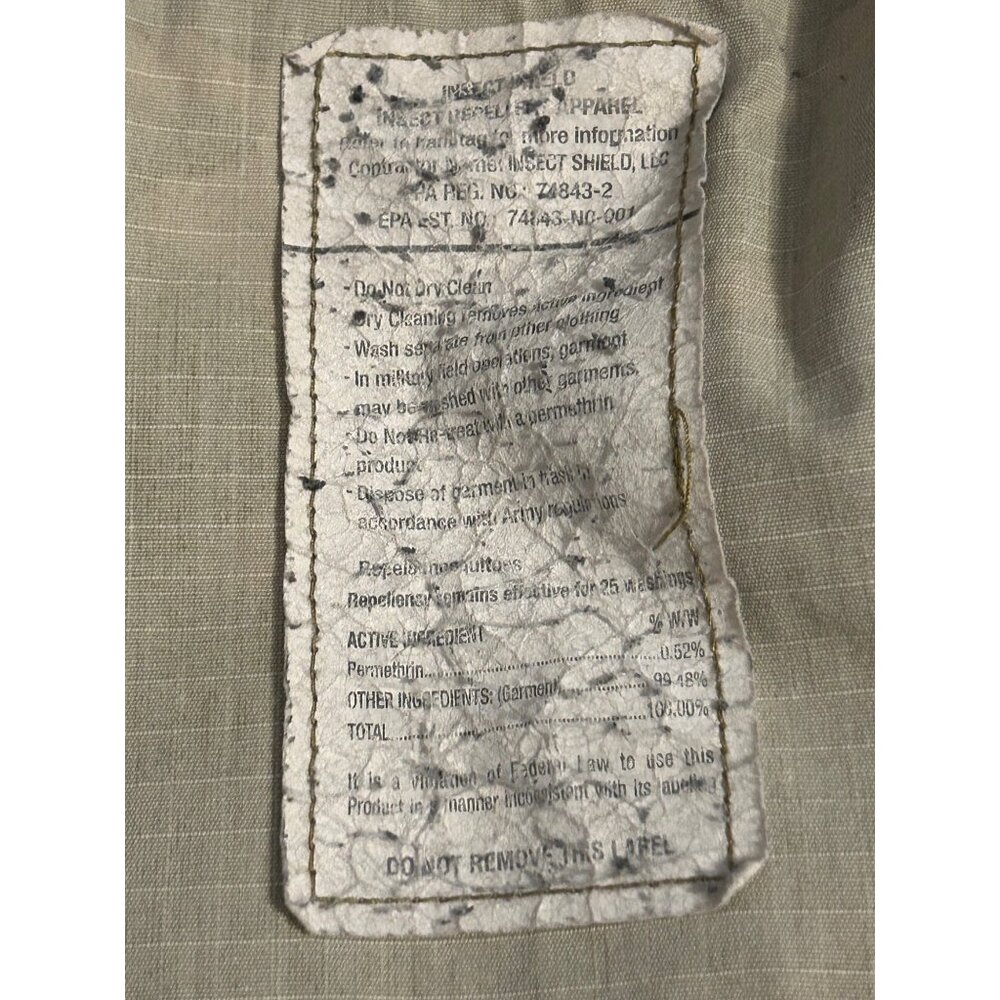 INSECT SHIELD
INSECT REPELLENT APPAREL
Refer to hand tag for more information
Contractor Name: INSECT SHIELD, LLC
EPA REG. NO.: 74843-2
EPA EST. NO.: 74843-NC-001
- Do Not Dry Clean
Dry Cleaning removes active ingredient
- Wash separate from other clothing
- In military field operations, garment
may be washed with other garments.
- Do Not Re-treat with a permethrin
product
- Dispose of garment in trash in
accordance with Army regulations
Repels mosquitoes
Repellency remains effective for 25 washings
ACTIVE INGREDIENT % W/W
Permethrin..............................0.52%
OTHER INGREDIENTS: (Garment)..............99.48%
TOTAL..............................100.00%
It is a violation of Federal Law to use this
Product in a manner inconsistent with its labeling
DO NOT REMOVE THIS LABEL